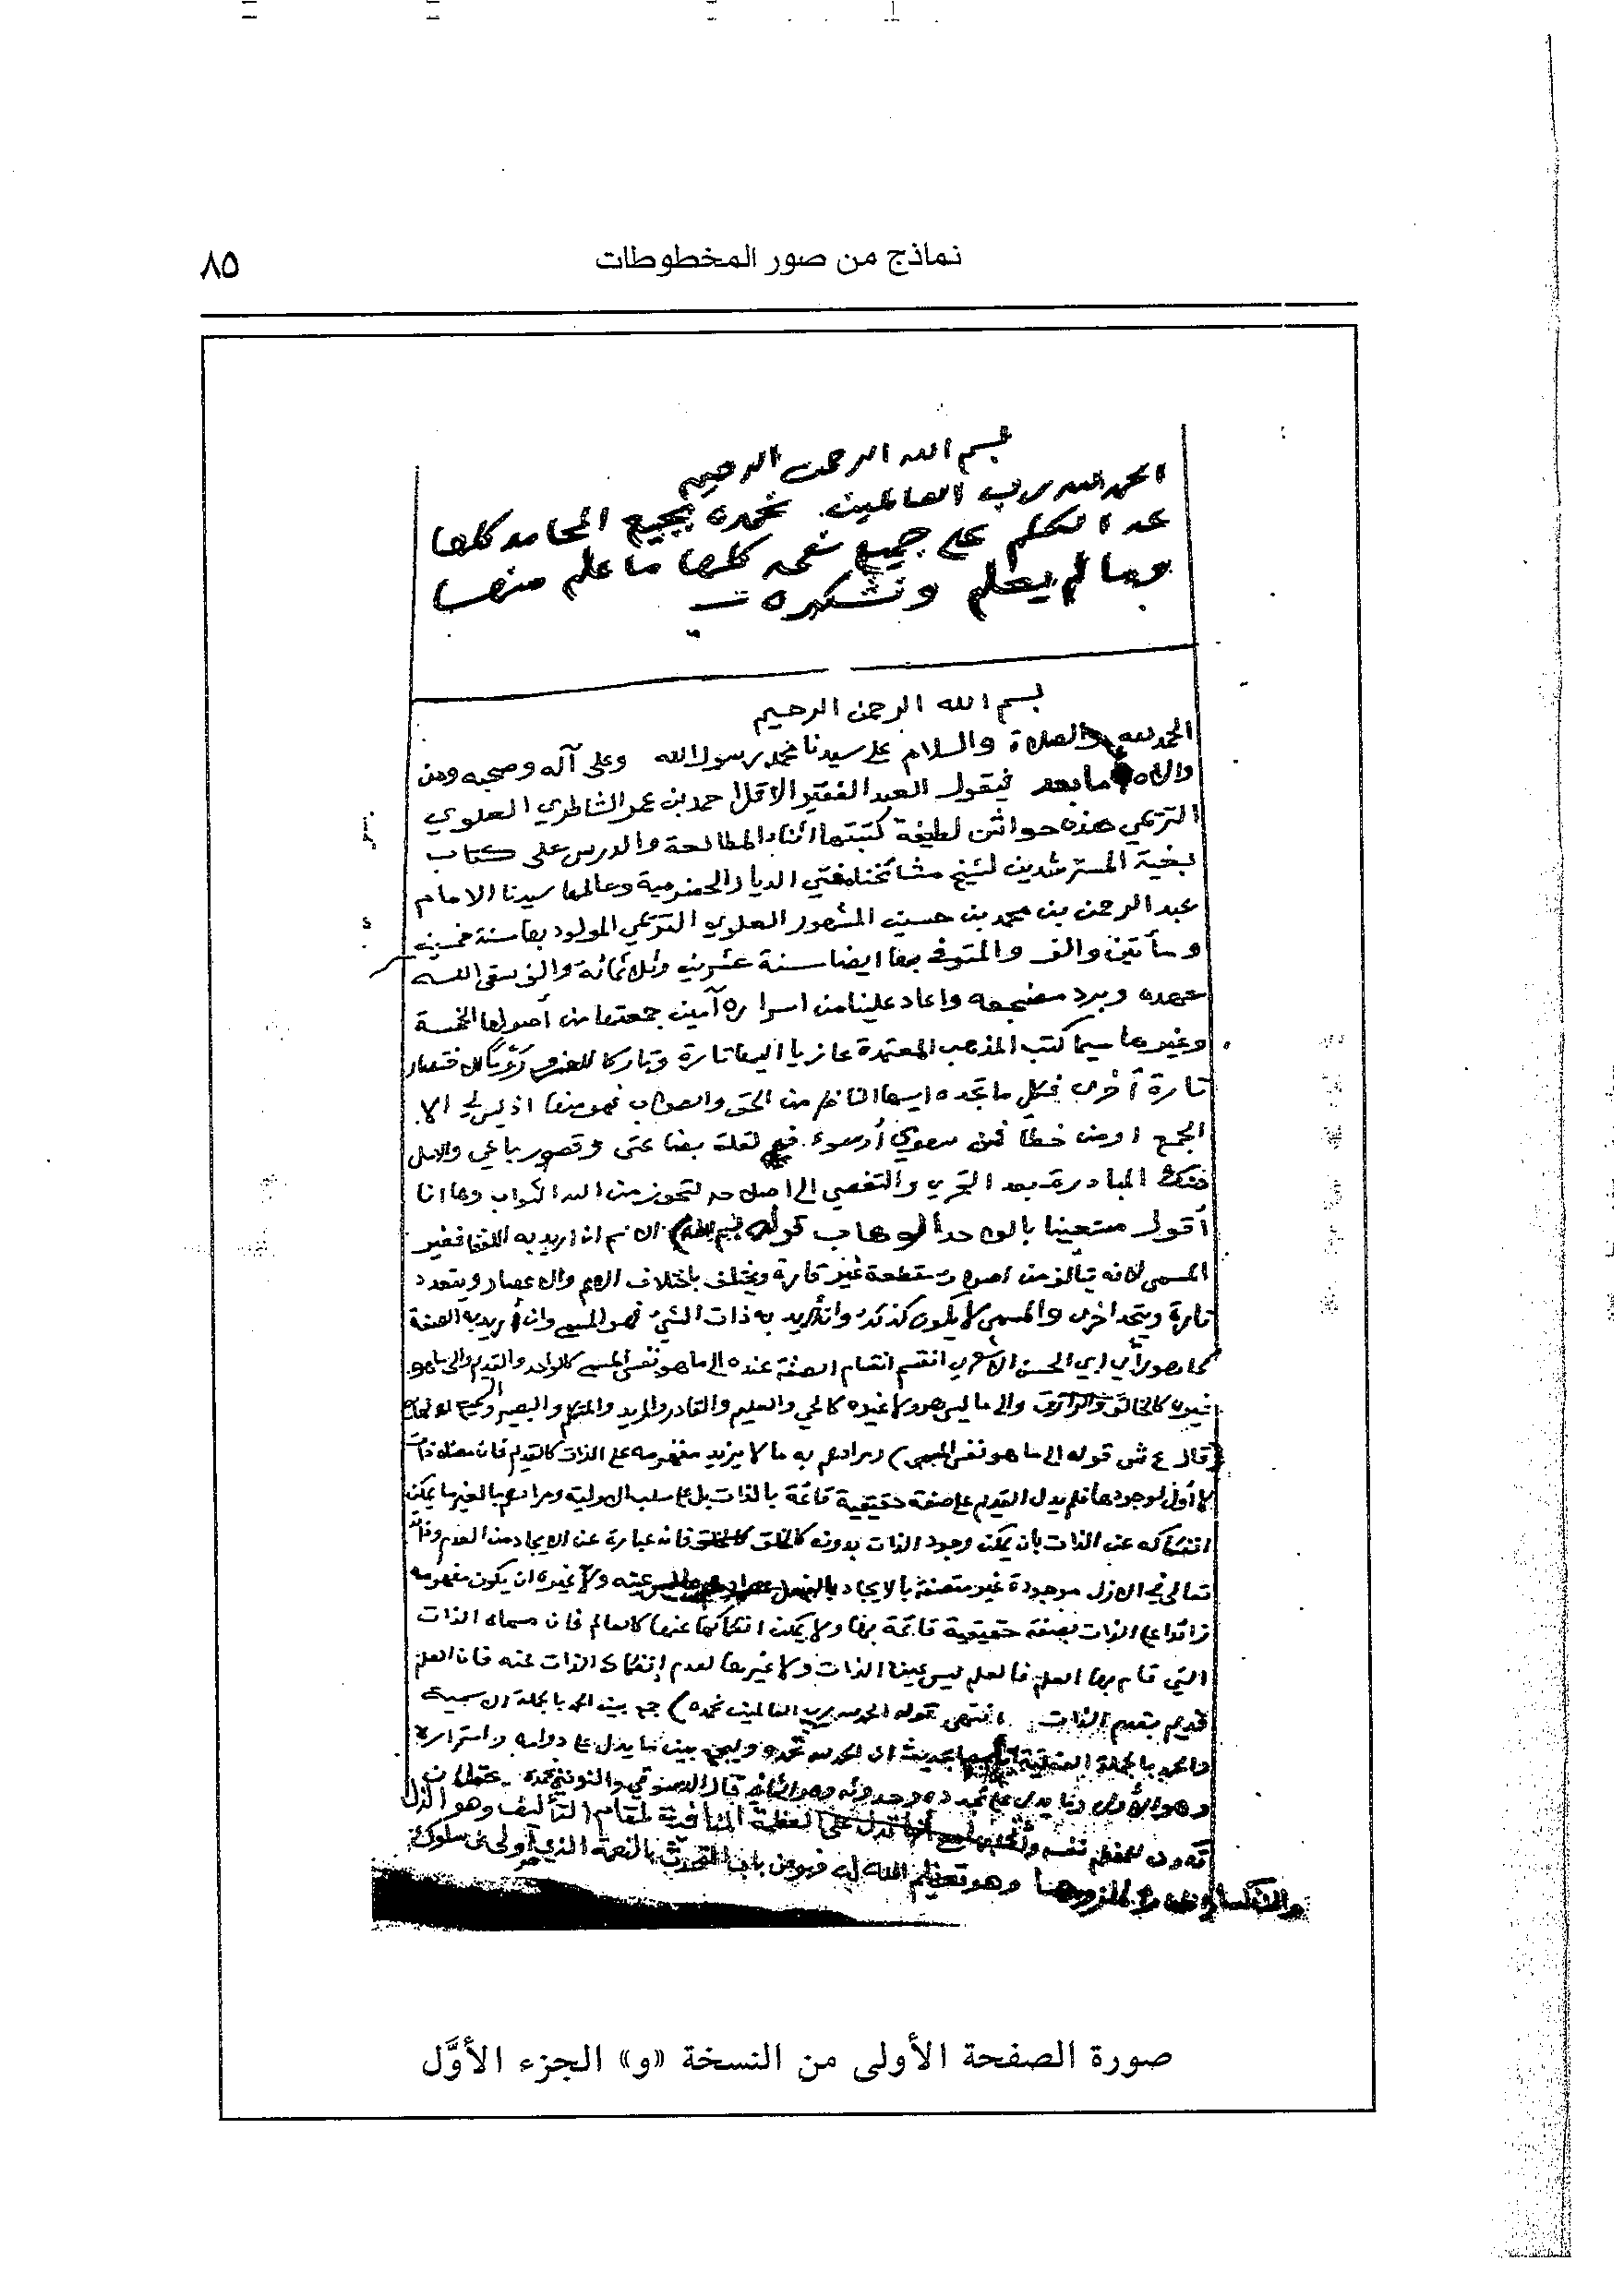 نماذج من صور المخطوطات
٨٥
بسم الله الرحمن الرحيم
الحمد لله رب العالمين نحمده بجميع المحامد كلها
عد الكلم على جميع نعمه كلها ما علم منها
وما لم يعلم ونشكره
بسم الله الرحمن الرحيم
الحمد لله والصلاة والسلام على سيدنا محمد رسول الله وعلى آله وصحبه ومن
والاه اما بعد فيقول العبد الفقير الاقل احمد بن عمر الشاطري العلوي
التريمي هذه حواش لطيفة كتبتها اثناء المطالعة والدرس على كتاب
بغية المسترشدين لشيخ مشائخنا مفتي الديار الحضرمية وعالمها سيدنا الامام
عبد الرحمن بن محمد بن حسين المشهور العلوي التريمي المولود بها سنة خمسين
ومأتين والف والمتوفى بها ايضا سنة عشرين وثلاثمائة والف سقى الله
عهده وبرد مضجعه واعاد علينا من اسراره آمين جمعتها من أصولها الخمسة
وغيرها سيما كتب المذهب المعتمدة عازيا اليها تارة وتاركا للعزو روما للاختصار
تارة أخرى فكل ما تجده ايها الناظر من الحق والصواب فهو منها اذ ليس لي الا
الجمع اومن خطأ فمن سهوي أو سوء فهمي لقلة بضاعتى وقصور باعي والامل
منك المبادرة بعد التحري والتقصي الى اصلاحه لتحوز من الله الثواب وها انا
أقول مستعينا بالواحد الوهاب قوله بسم الله) الاسم ان اريد به اللفظ فغير
المسمى لانه يتألف من اصوات متقطعة غير قارة ويختلف باختلاف الامم والاعصار ويتعدد
تارة ويتحد اخرى والمسمى لا يكون كذلك وان أريد به ذات الشيئ فهو المسمى وان أريد به الصفة
كما هو رأي ابي الحسن الاشعري انقسم انقسام الصفة عنده الى ما هو نفس المسمى كالواحد والقديم والى ما هو
غيره كالخالق والرازق والى ما ليس هو ولا غيره كالحي والعليم والقادر والمريد والمتكلم والبصير والسميع
(قال ع ش قوله الى ما هو نفس المسمى) مرادهم به ما لا يزيد مفهومه على الذات كالقديم فان معناه ذات
لا أول لوجودها فلم يدل القديم على صفة حقيقية قائمة بالذات بل على سلب الاولية ومرادهم بالغير ما يمكن
انفكاكه عن الذات بأن يمكن وجود الذات بدونه كالخلق فانه عبارة عن الايجاد من العدم وذاته
تعالى في الازل موجودة غير متصفة بالايجاد بالفعل عينه ولا غيره ان يكون مفهومه
زائدا على الذات بصفة حقيقية قائمة بها ولا يمكن انفكاكها عنها كالعالم فان مسماه الذات
التي قام بها العلم فالعلم ليس عين الذات ولا غيرها لعدم إنفكاك الذات عنه فان العلم
قديم بقدم الذات انتهى قوله الحمد لله رب العالمين نحمده) جمع بين الحمد بالجملة الاسمية
والحمد بالجملة الفعلية بحديث ان الحمد لله نحمده وليجمع بين ما يدل على دوامه واستمراره
وهو الأول وما يدل على تجدده وحدوثه وهو الثاني قال الدسوقي والنون في نحمده
تكون للمعظم نفسه العظمة المنافية لمقام التأليف وهو الذل
والانكسار وهو تعظيم الله له فهو من باب التحدث بالنعمة الذي أولى من سلوك
صورة الصفحة الأولى من النسخة «و» الجزء الأوَّل